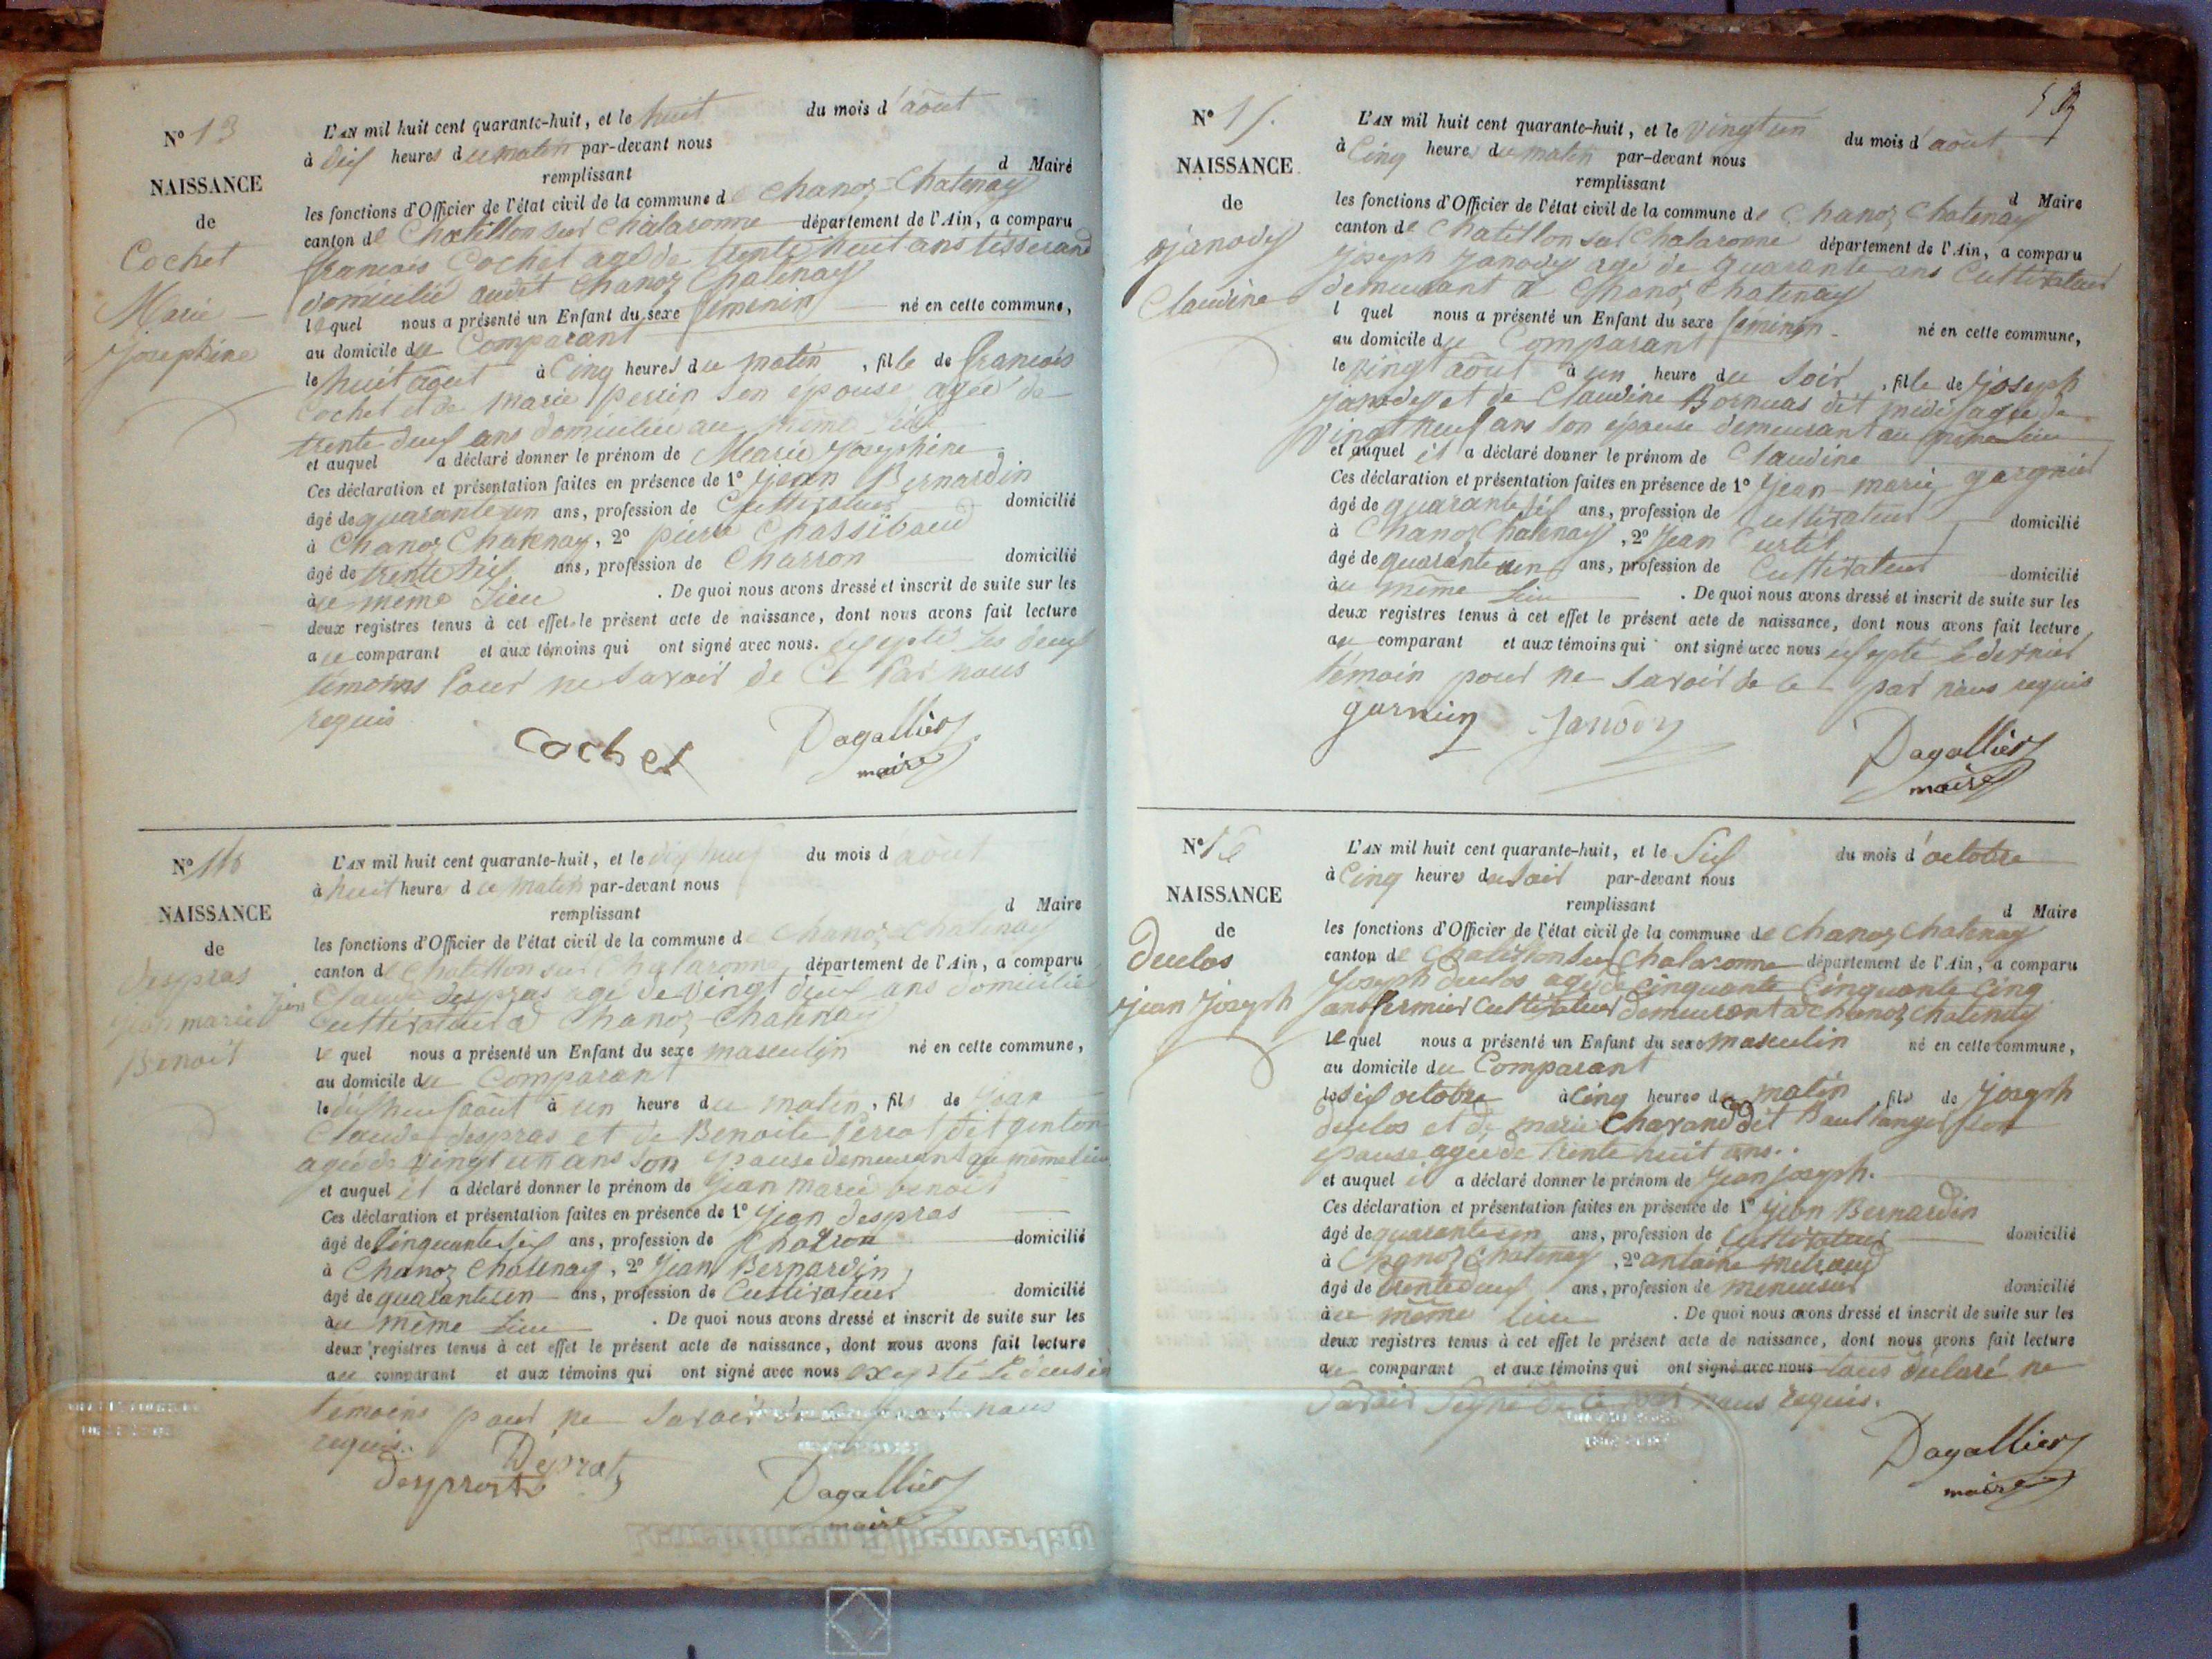 N° 13
NAISSANCE
de
Cochet
Marie
Josephine
L'AN mil huit cent quarante-huit, et le huit du mois d'août
à dix heures du matin par-devant nous
d Maire
remplissant
les fonctions d'Officier de l'état civil de la commune de Chanoz-Chatenay
canton de Chatillon sur Chalaronne département de l'Ain, a comparu
francois Cochet agé de trente huit ans tisserand
domicilié audit Chanoz Chatenay
lequel nous a présenté un Enfant du sexe féminin né en cette commune,
au domicile du Comparant
le huit août à Cinq heures du matin, fille de francois
Cochet et de marie perrin son épouse agée de
trente deux ans domiciliée au même lieu
et auquel a déclaré donner le prénom de Marie Josephine
Ces déclaration et présentation faites en présence de 1° Jean Bernardin
âgé de quarante un ans, profession de Cultivateur domicilié
à Chanoz Chatenay, 2° pierre Chassiboud
âgé de trente six ans, profession de Charron domicilié
au même lieu. De quoi nous avons dressé et inscrit de suite sur les
deux registres tenus à cet effet le présent acte de naissance, dont nous avons fait lecture
au comparant et aux témoins qui ont signé avec nous. excepté les deux
témoins Pour ne savoir de Ce Par nous
requis
Cochet
Dagallier
maire
N° 14
NAISSANCE
de
Despras
jean marie
Benoit
L'AN mil huit cent quarante-huit, et le dix neuf du mois d'août
à huit heures du matin par-devant nous
d Maire
remplissant
les fonctions d'Officier de l'état civil de la commune de Chanoz-Chatenay
canton de Chatillon sur Chalaronne département de l'Ain, a comparu
Claude despras agé de vingt deux ans domicilié
Cultivateur à Chanoz-Chatenay
lequel nous a présenté un Enfant du sexe masculin né en cette commune,
au domicile du Comparant
le dix neuf août à un heure du matin, fils de jean
Claude despras et de Benoite Perrot dit genton
agée de vingt un ans son épouse demeurant au même lieu
et auquel il a déclaré donner le prénom de Jean marie benoit
Ces déclaration et présentation faites en présence de 1° Jean despras
âgé de Cinquante six ans, profession de Charron domicilié
à Chanoz Chatenay, 2° Jean Bernardin
âgé de quarante un ans, profession de Cultivateur domicilié
au même lieu. De quoi nous avons dressé et inscrit de suite sur les
deux registres tenus à cet effet le présent acte de naissance, dont nous avons fait lecture
au comparant et aux témoins qui ont signé avec nous excepté
témoins pour ne savoir de Ce par nous
requis.
Despras
Dagallier
maire
N° 15
NAISSANCE
de
Janody
Claudine
L'AN mil huit cent quarante-huit, et le vingt un du mois d'août
à Cinq heures du matin par-devant nous
d Maire
remplissant
les fonctions d'Officier de l'état civil de la commune de Chanoz Chatenay
canton de Chatillon sur Chalaronne département de l'Ain, a comparu
Joseph Janody agé de quarante ans Cultivateur
demeurant à Chanoz Chatenay
l quel nous a présenté un Enfant du sexe féminin né en cette commune,
au domicile du Comparant
le vingt août à un heure du soir, fille de joseph
janody et de Claudine Bornuas dit midi agée de
vingt neuf ans son épouse demeurant au même lieu
et auquel il a déclaré donner le prénom de Claudine
Ces déclaration et présentation faites en présence de 1° Jean-marie gargnier
âgé de quarante six ans, profession de Cultivateur domicilié
à Chanoz Chatenay, 2° Jean Curtet
âgé de quarante un ans, profession de Cultivateur domicilié
au même lieu. De quoi nous avons dressé et inscrit de suite sur les
deux registres tenus à cet effet le présent acte de naissance, dont nous avons fait lecture
au comparant et aux témoins qui ont signé avec nous excepté le dernier
témoin pour ne savoir de Ce par nous requis
garnier Janody
Dagallier
maire
N° 16
NAISSANCE
de
Duclos
jean Joseph
L'AN mil huit cent quarante-huit, et le Six du mois d'octobre
à Cinq heures du soir par-devant nous
d Maire
remplissant
les fonctions d'Officier de l'état civil de la commune de Chanoz Chatenay
canton de Chatillon sur Chalaronne département de l'Ain, a comparu
Joseph duclos agé de cinquante Cinquante Cinq
ans fermier Cultivateur demeurant à chanoz Chatenay
lequel nous a présenté un Enfant du sexe masculin né en cette commune,
au domicile du Comparant
le six octobre à Cinq heures du matin, fils de Joseph
duclos et de marie Chavand dit Boullanger son
épouse agée de trente huit ans.
et auquel il a déclaré donner le prénom de Jean joseph.
Ces déclaration et présentation faites en présence de 1° Jean Bernardin
âgé de quarante un ans, profession de Cultivateur domicilié
à Chanoz Chatenay, 2° antoine mitraud
âgé de trente deux ans, profession de menuisier domicilié
au même lieu. De quoi nous avons dressé et inscrit de suite sur les
deux registres tenus à cet effet le présent acte de naissance, dont nous avons fait lecture
au comparant et aux témoins qui ont signé avec nous tous déclaré ne
savoir signé de ce par nous requis.
Dagallier
maire